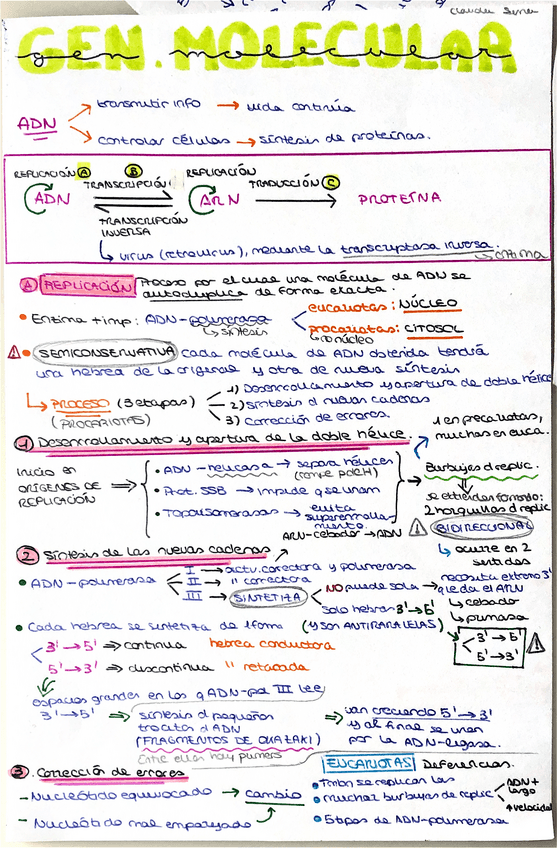 Claudia
GEN. MOLECULAR
gen molecular
ADN
transmitir info → vida continúa
controlar células → síntesis de proteínas.
REPLICACIÓN A B REPLICACIÓN
TRANSCRIPCIÓN TRADUCCIÓN C
ADN ARN PROTEÍNA
TRANSCRIPCIÓN
INVERSA
virus (retrovirus), mediante la transcriptasa inversa.
enzima
A REPLICACIÓN Proceso por el cual una molécula de ADN se
autoduplica de forma exacta.
• Enzima + imp: ADN-polimerasa
eucariotas: NÚCLEO
↳ síntesis
procariotas: CITOSOL
↳ no núcleo
⚠ • SEMICONSERVATIVA cada molécula de ADN obtenida tendrá
una hebra de la original y otra de nueva síntesis
↳ PROCESO (3 etapas)
(PROCARIOTAS)
1) Desenrollamiento y apertura de doble hélice
2) síntesis d nuevas cadenas
3) Corrección de errores.
1 Desenrollamiento y apertura de la doble hélice.
1 en procariotas,
muchas en euca.
Inicio en
ORÍGENES DE
REPLICACIÓN ⇒
• ADN-helicasa → separa hélices
(rompe pdeH)
• Prot. SSB → impide q se unan
• Topoisomerasas → evita
superenrolla-
miento.
Burbujas d replic.
se extienden formando:
2 horquillas d replic
⚠ BIDIRECCIONAL
↳ ocurre en 2
sentidos
2 Síntesis de las nuevas cadenas
ARN-cebador → ADN
• ADN-polimerasa
I → activ. correctora y polimerasa
II → " correctora
III → SINTETIZA
NO puede sola → necesita extremo 3'
que da el ARN
↳ cebador
↳ primasa
solo hebras 3'→5'
• Cada hebra se sintetiza de 1 forma (Y SON ANTIPARALELAS)
3'→5'
5'→3'
⚠
3'→5' ⇒ continua hebra conductora
5'→3' ⇒ discontinua " retrasada
espacios grandes en los q ADN-pol III lee
3'→5' ⇒ síntesis d pequeños
trocitos d ADN
(FRAGMENTOS DE OKAZAKI)
Entre ellos hay primers
⇒ van creciendo 5'→3'
y al final se unen
por la ADN-ligasa.
3 Corrección de errores
- Nucleótido equivocado → cambio
- Nucleótido mal emparejado
EUCARIOTAS Diferencias.
• se replican las
• muchas burbujas de replic
ADN +
largo
↑ velocidad
• 5 tipos de ADN-polimerasa